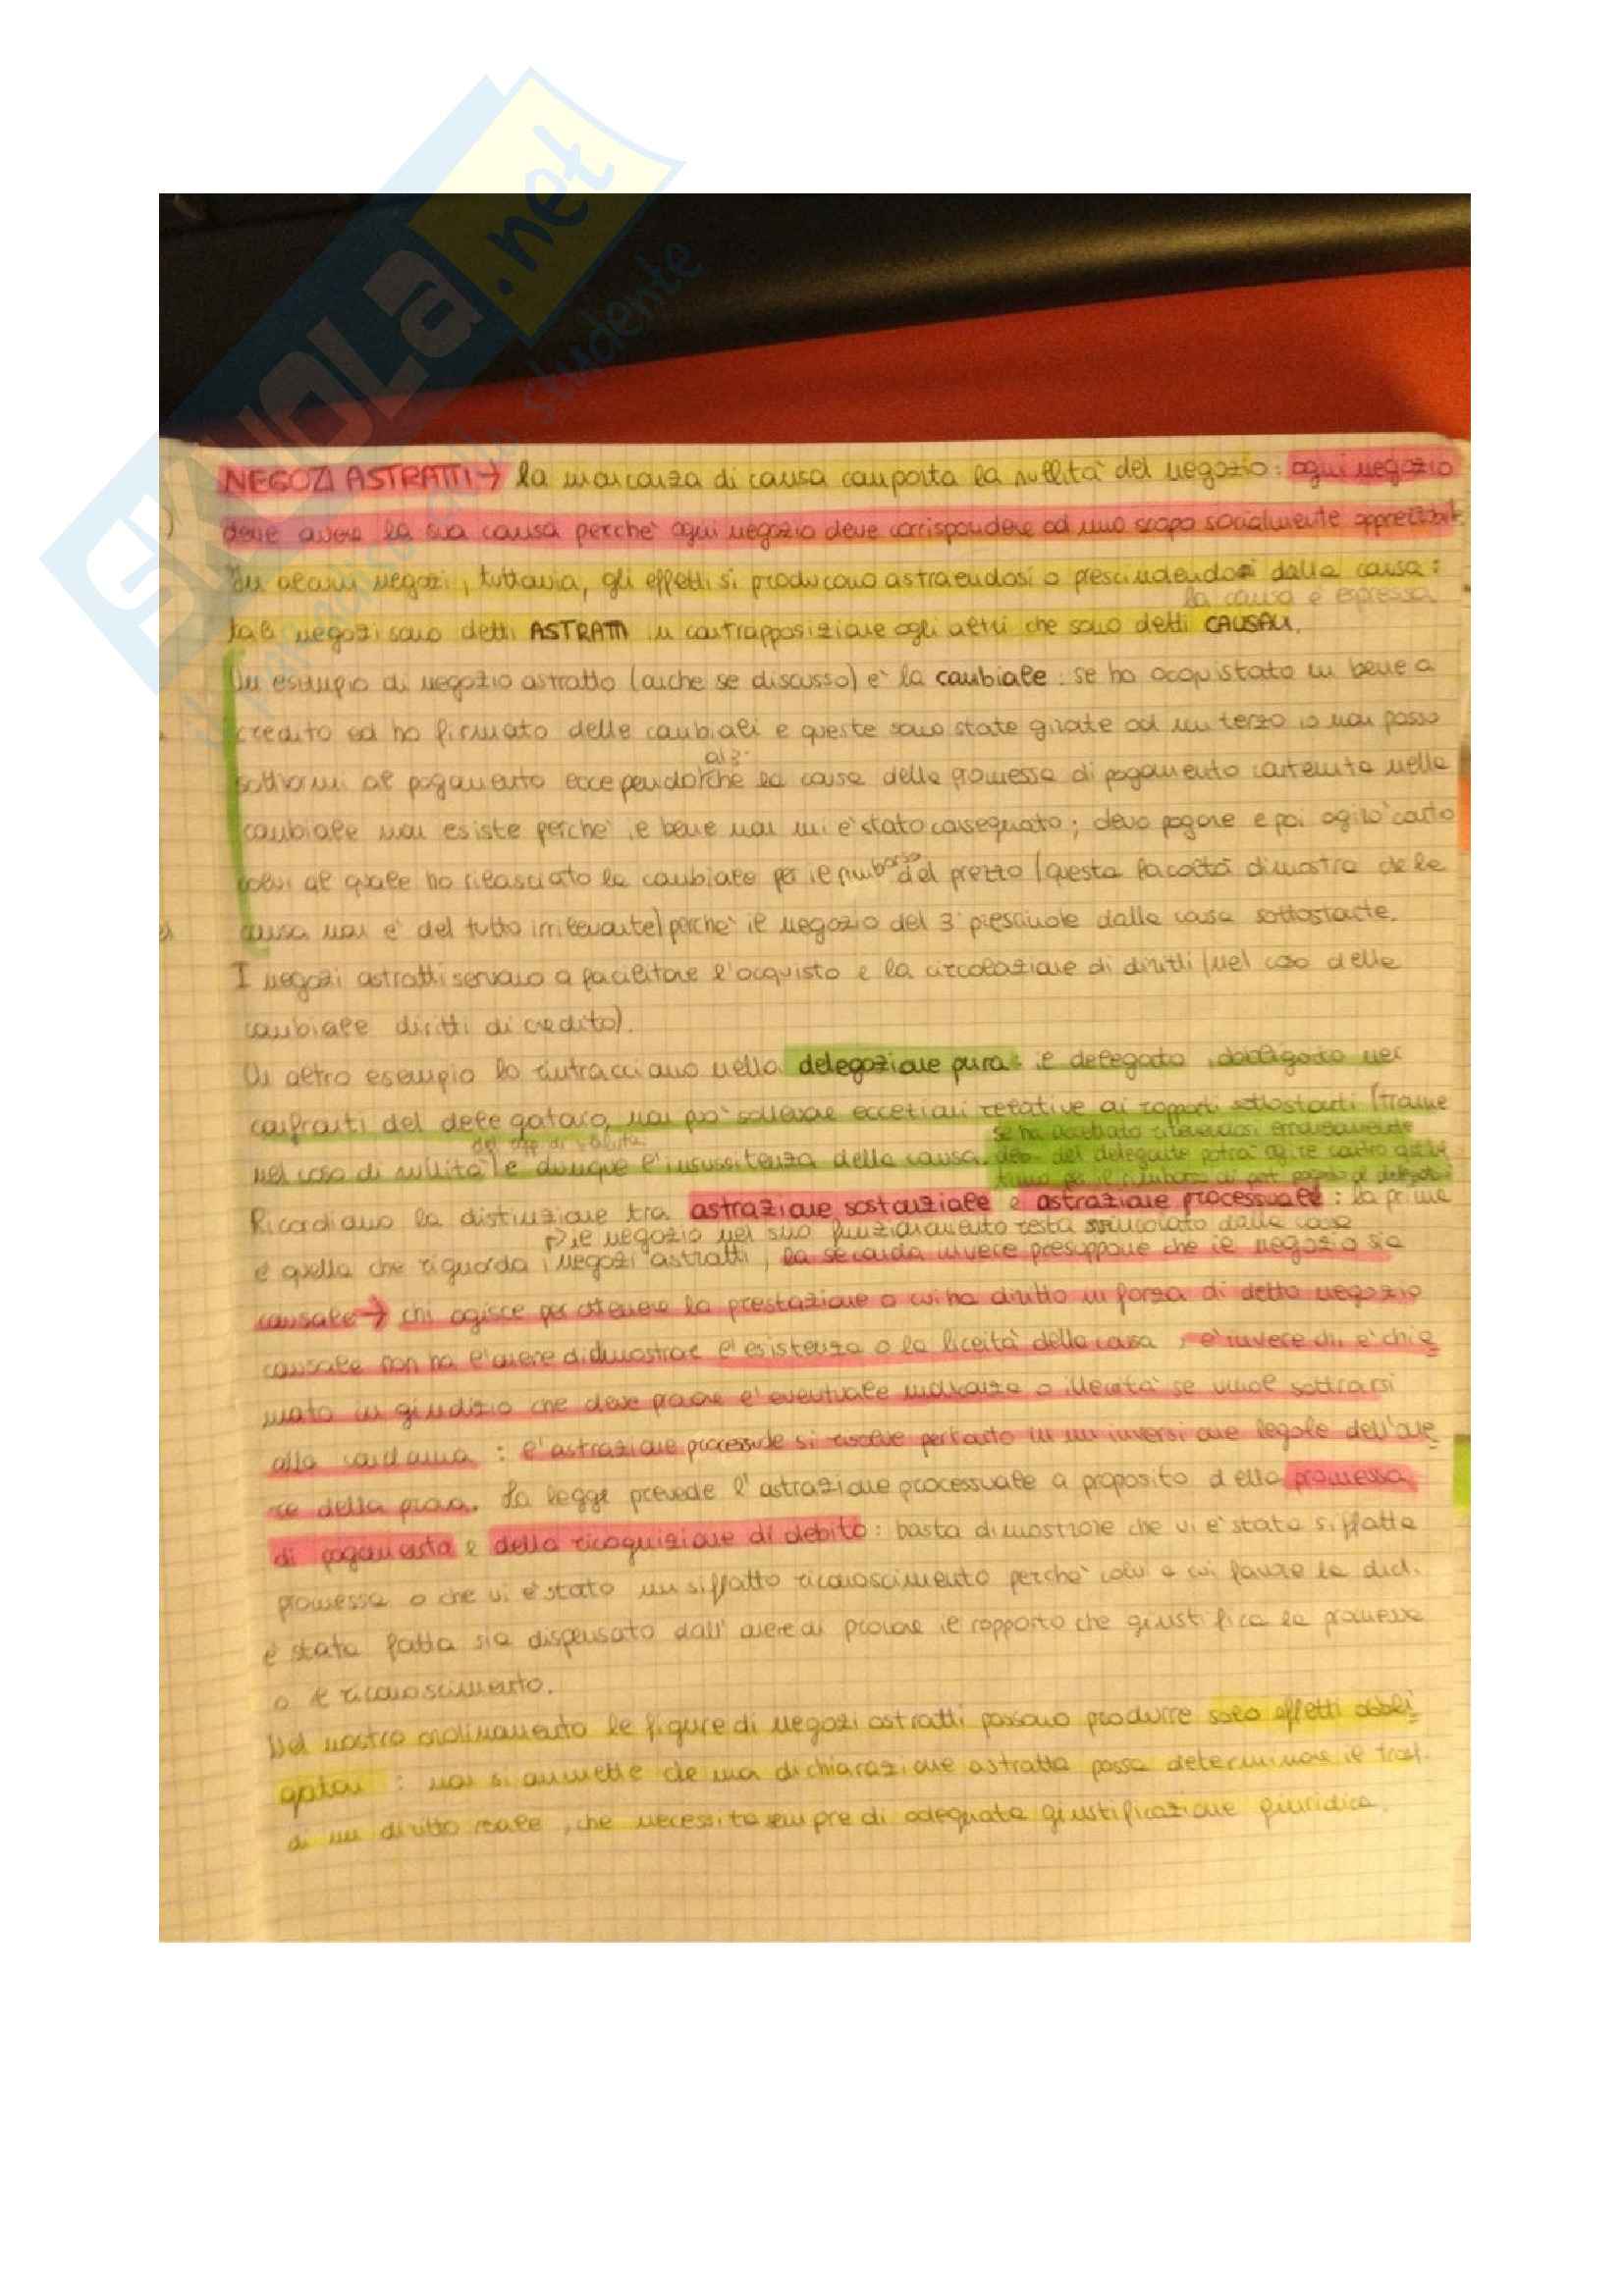 SKUOLA.net
il paradiso dello studente
NEGOZI ASTRATTI → la mancanza di causa comporta la nullità del negozio: ogni negozio
deve avere la sua causa perchè ogni negozio deve corrispondere ad uno scopo socialmente apprezzabile.
In alcuni negozi, tuttavia, gli effetti si producono astraendosi o prescindendosi dalla causa:
la causa è espressa
tali negozi sono detti ASTRATTI in contrapposizione agli altri che sono detti CAUSALI.
Un esempio di negozio astratto (anche se discusso) è la cambiale: se ho acquistato un bene a
credito ed ho firmato delle cambiali e queste sono state girate ad un terzo io non posso
al 3°
sottrarmi al pagamento eccependo che la causa della promessa di pagamento contenuta nella
cambiale non esiste perchè il bene non mi è stato consegnato; devo pagare e poi agirò contro
colui al quale ho rilasciato la cambiale per il rimborso del prezzo (questa facoltà dimostra che la
causa non è del tutto irrilevante) perchè il negozio del 3° prescinde dalla causa sottostante.
I negozi astratti servono a facilitare l'acquisto e la circolazione di diritti (nel caso della
cambiale diritti di credito).
Un altro esempio lo rintracciamo nella delegazione pura: il delegato, obbligato nei
confronti del delegatario, non può sollevare eccezioni relative ai rapporti sottostanti (tranne
del rapp di valuta
nel caso di nullità) e dunque l'insussistenza della causa.
se ha accettato ritenendosi erroneamente
deb. del delegante potrà agire contro
Ricordiamo la distinzione tra astrazione sostanziale e astrazione processuale: la prima
il negozio nel suo funzionamento resta svincolato dalla causa
è quella che riguarda i negozi astratti, la seconda invece presuppone che il negozio sia
causale → chi agisce per ottenere la prestazione a cui ha diritto in forza di detto negozio
causale non ha l'onere di dimostrare l'esistenza o la liceità della causa, è invece chi è chia
mato in giudizio che deve provare l'eventuale mancanza o illiceità se vuole sottrarsi
alla condanna: l'astrazione processuale si risolve pertanto in un inversione legale dell'one
re della prova. La legge prevede l'astrazione processuale a proposito della promessa
di pagamento e della ricognizione di debito: basta dimostrare che vi è stata siffatta
promessa o che vi è stato un siffatto riconoscimento perchè colui a cui favore la dich.
è stata fatta sia dispensato dall'onere di provare il rapporto che giustifica la promessa
o il riconoscimento.
Nel nostro ordinamento le figure di negozi astratti possono produrre solo effetti obbli
gatori: non si ammette che una dichiarazione astratta possa determinare il trasf.
di un diritto reale, che necessita sempre di adeguata giustificazione giuridica.